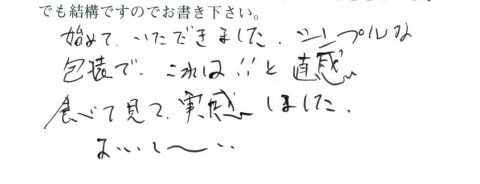 でも結構ですのでお書き下さい。
始めて、いただきました、シンプルな
包装で、これは!!と直感
食べて見て、実感しました、
おいし〜い